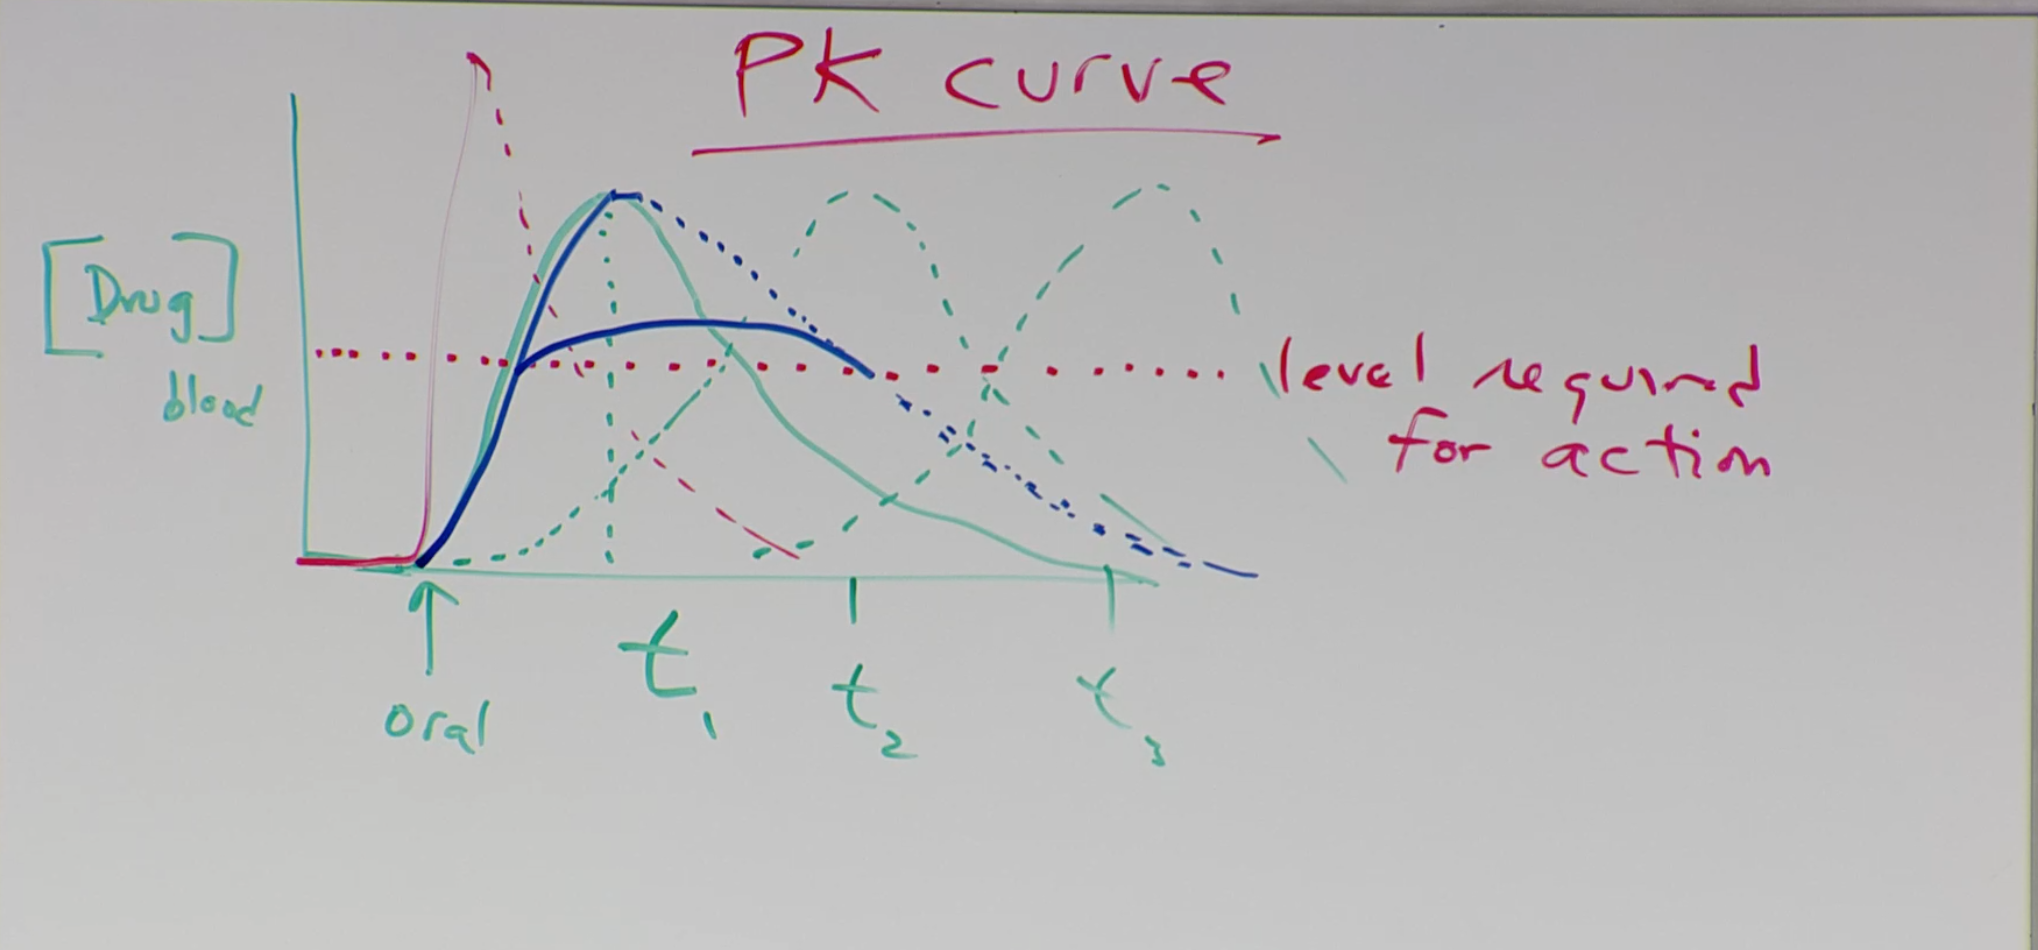 PK curve
[Drug]
blood
level required
for action
oral
t₁
t₂
t₃